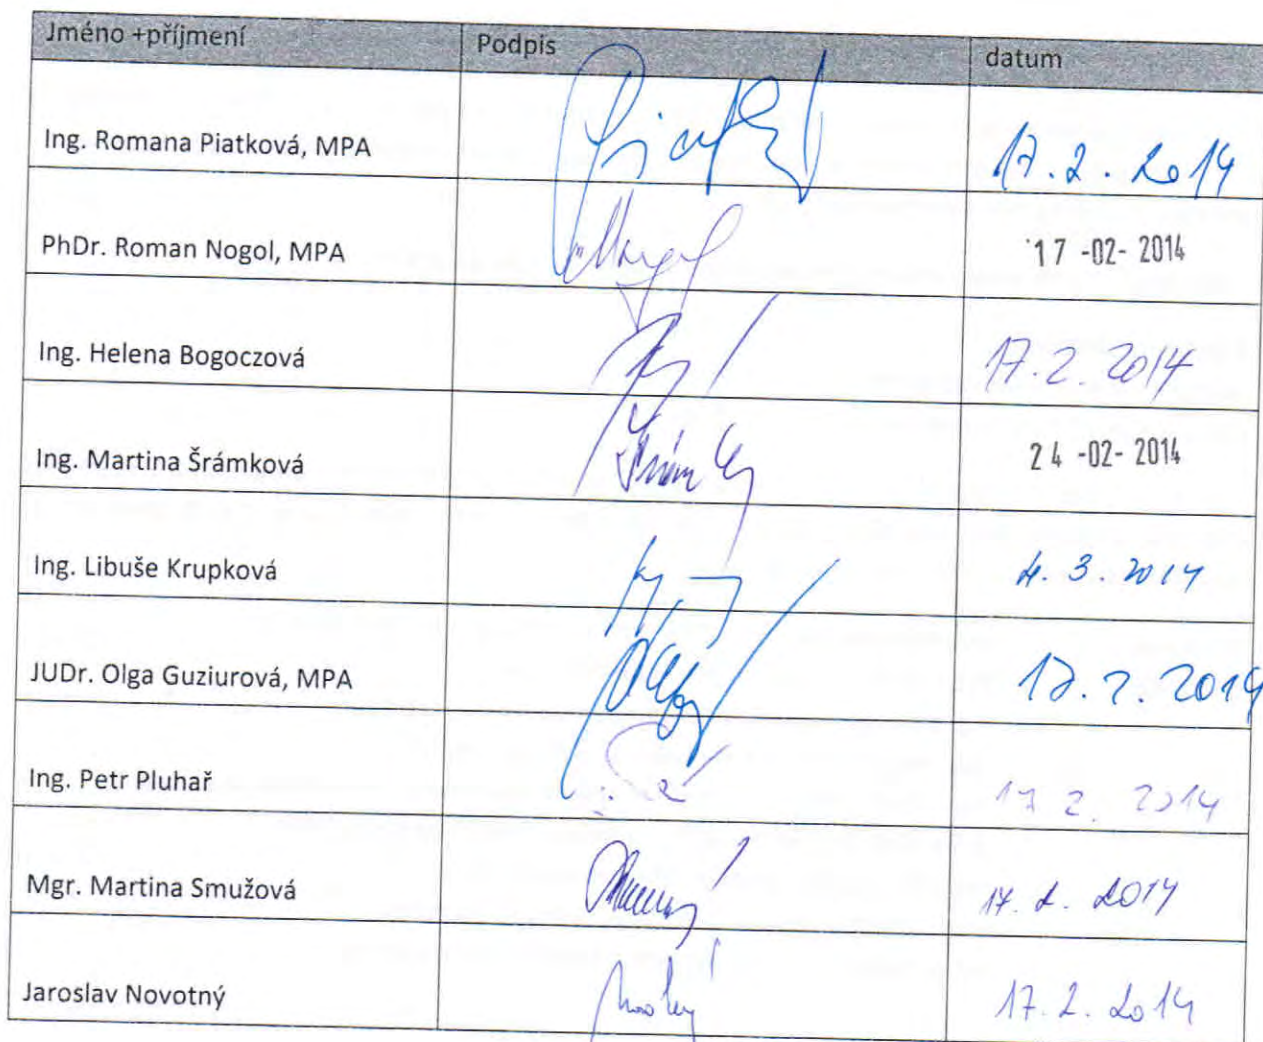 Jméno +příjmení Podpis datum
Ing. Romana Piatková, MPA 17.2.2014
PhDr. Roman Nogol, MPA 17 -02- 2014
Ing. Helena Bogoczová 17.2.2014
Ing. Martina Šrámková 24 -02- 2014
Ing. Libuše Krupková 4.3.2014
JUDr. Olga Guziurová, MPA 17.2.2014
Ing. Petr Pluhař 17.2.2014
Mgr. Martina Smužová 17.2.2014
Jaroslav Novotný 17.2.2014